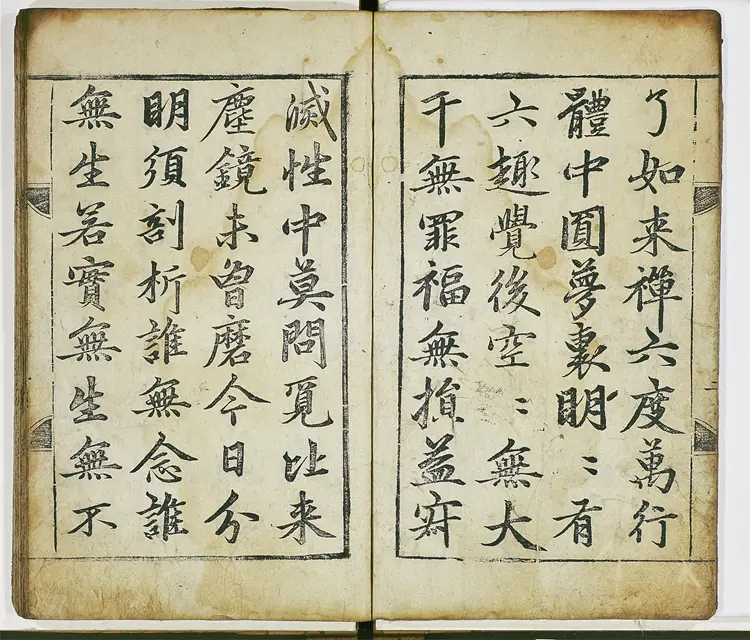 了如来禪六度萬行
體中圎夢裏明〻有
六趣覺後空〻無大
千無罪福無損益㝷
滅性中莫問覓比来
塵鏡未曽磨今日分
明須剖析誰無念誰
無生若實無生無不